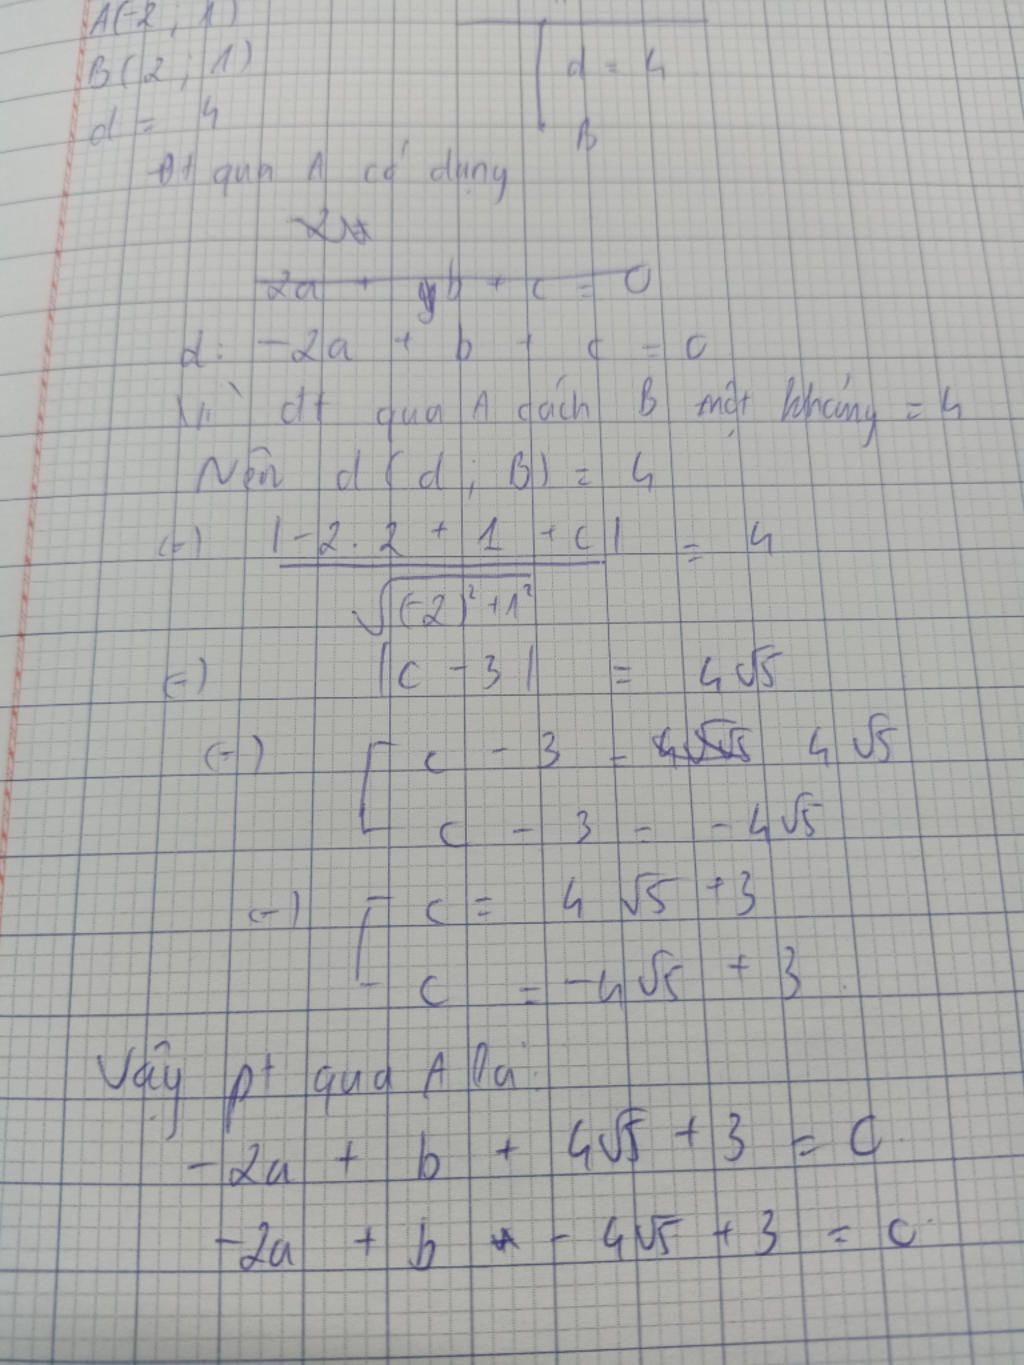 A(-2 ; 1)
B(2 ; 1)
d = 4
d = 4
B
Đt qua A có dạng
2x
2a + yb + c = 0
d: -2a + b + c = 0
Vì đt qua A cách B một khoảng = 4
Nên d(d ; B) = 4
(=) |-2.2 + 1 + c| = 4
√(-2)² + 1²
(=) |c - 3| = 4√5
(=) [ c - 3 = 4√5
c - 3 = -4√5
(=) [ c = 4√5 + 3
c = -4√5 + 3
Vậy pt qua A là:
-2a + b + 4√5 + 3 = 0
-2a + b - 4√5 + 3 = 0